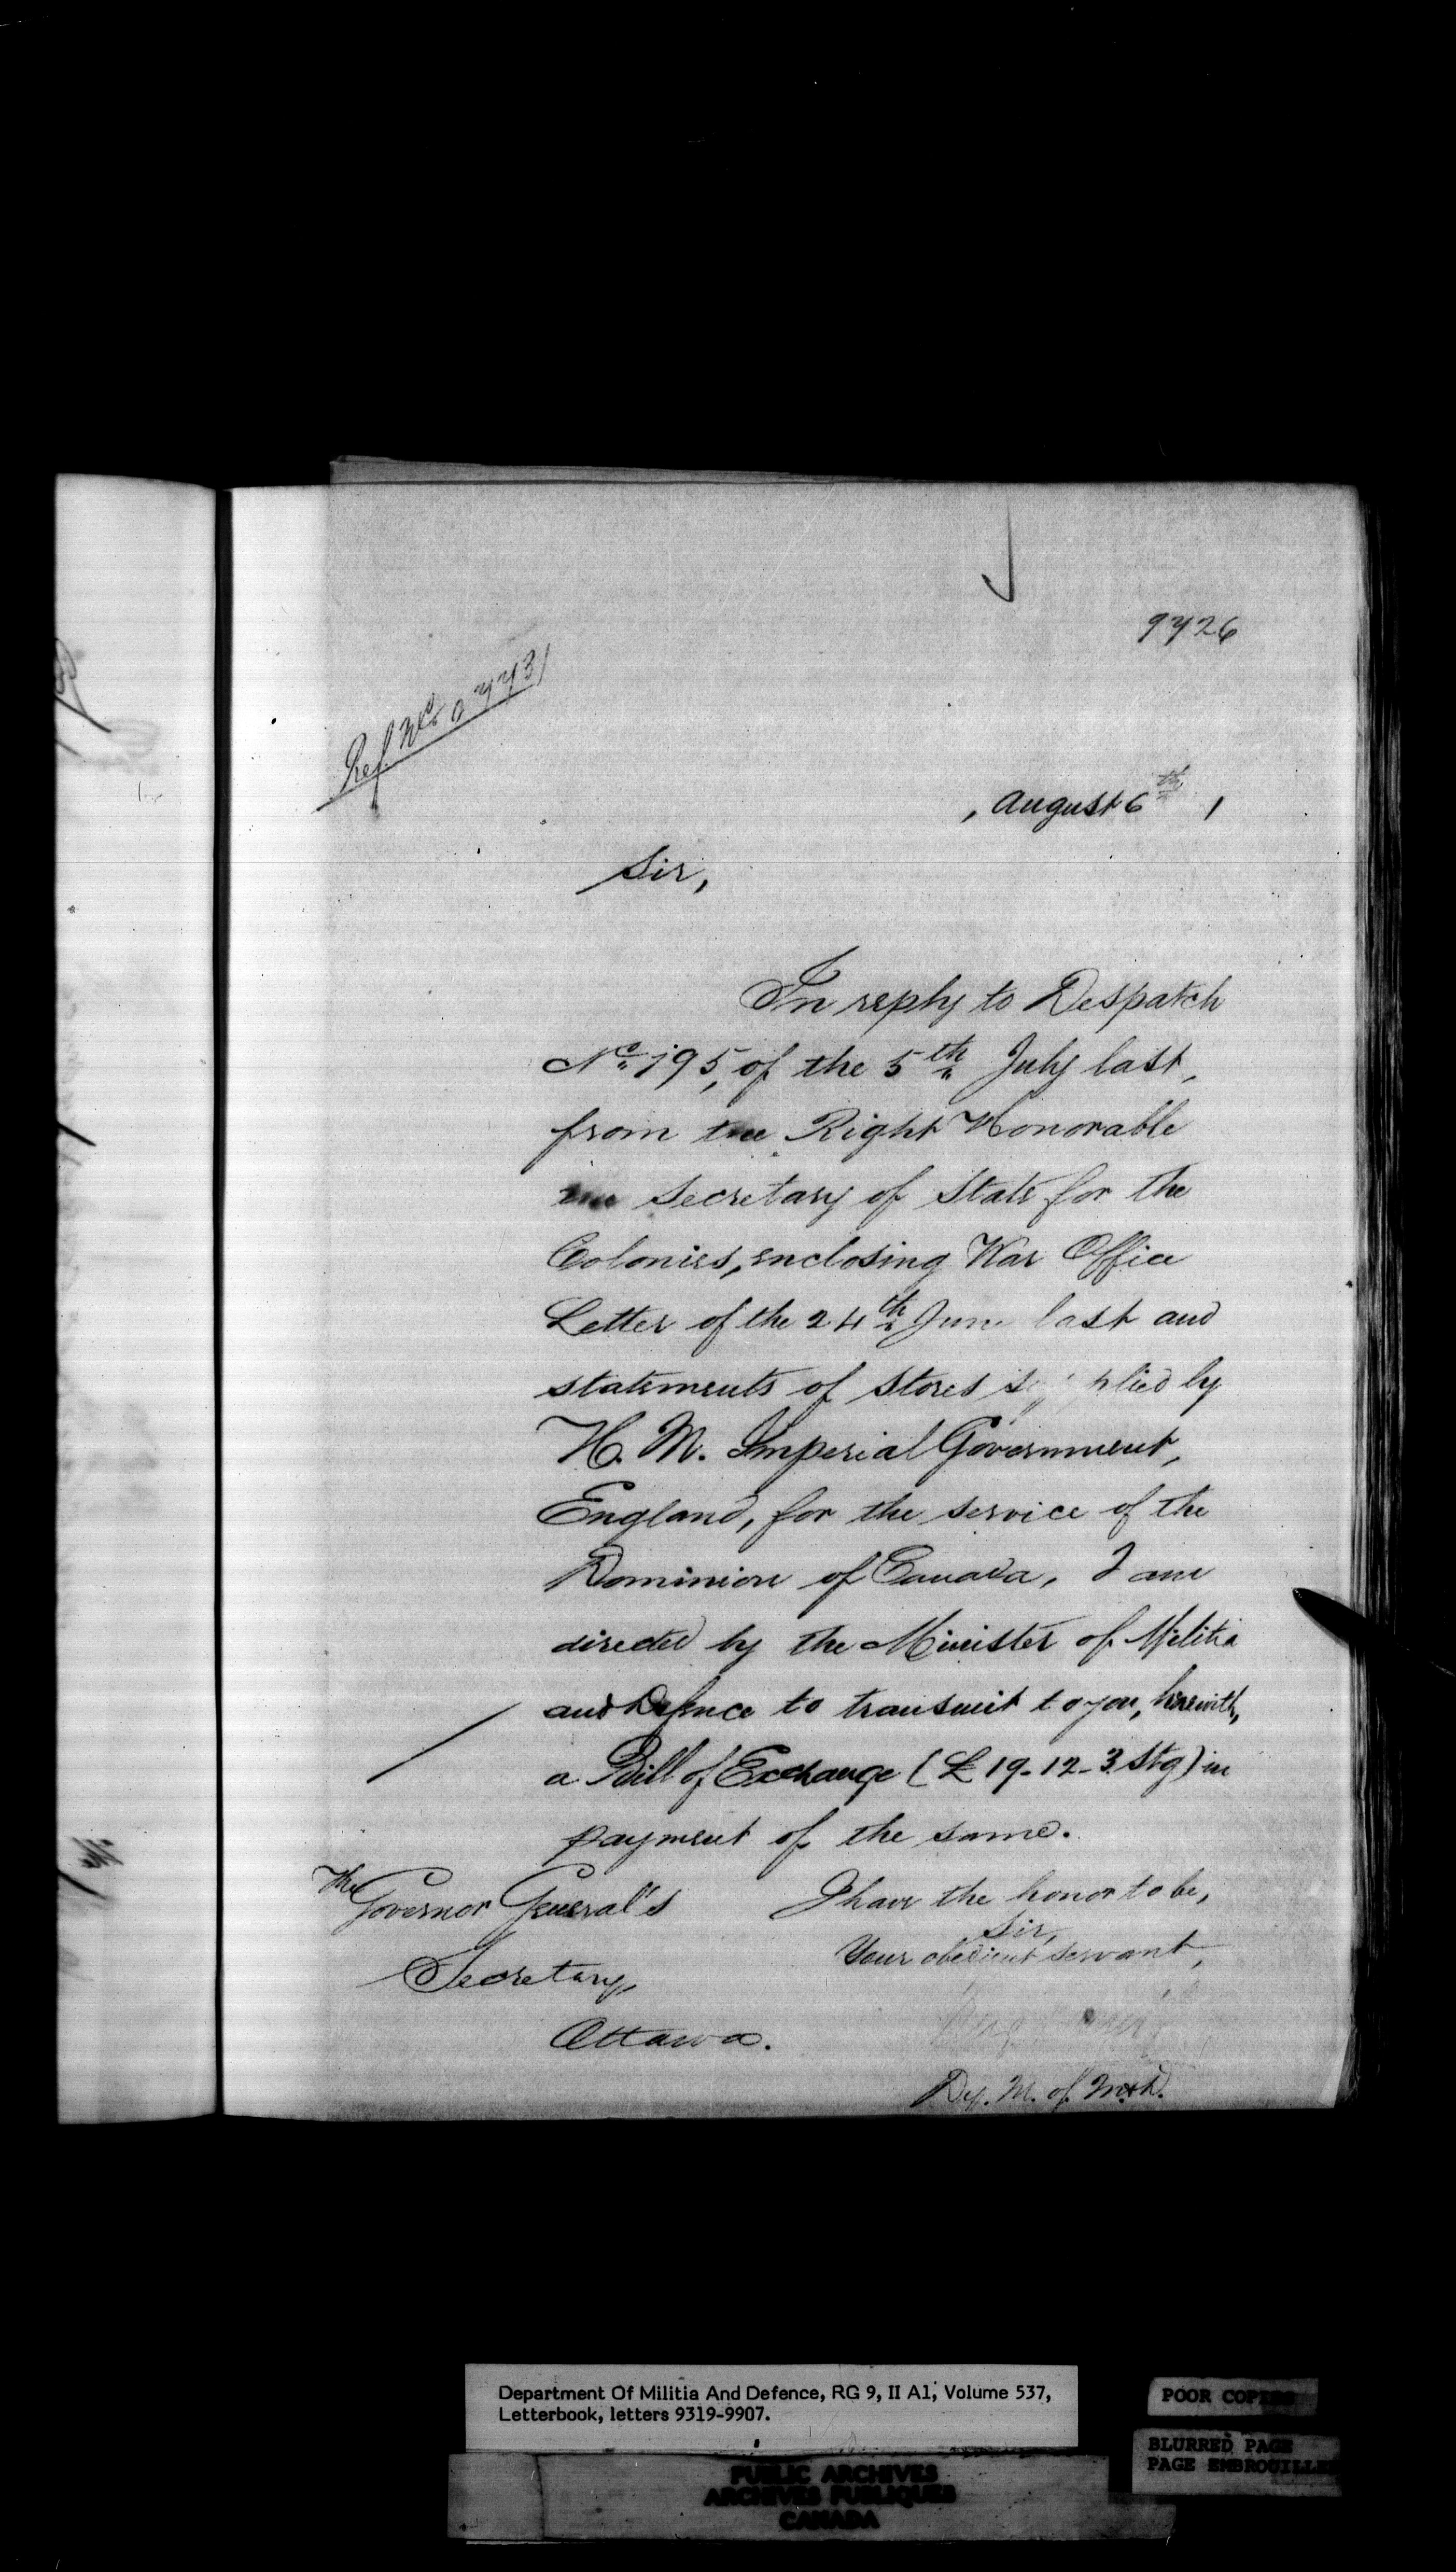 9726
Ref. No 07731
, August 6th ,
Sir,
In reply to Despatch
No 195, of the 5th July last,
from the Right Honorable
the Secretary of State for the
Colonies, enclosing War Office
Letter of the 24th June last and
statements of Stores supplied by
H. M. Imperial Government,
England, for the service of the
Dominion of Canada, I am
directed by the Minister of Militia
and Defence to transmit to you, herewith,
a Bill of Exchange (£19-12-3 Stg) in
payment of the same.
I have the honor to be,
Sir,
Your obedient servant,
Dy. M. of M & D.
The Governor General's
Secretary,
Ottawa.
Department Of Militia And Defence, RG 9, II A1, Volume 537,
Letterbook, letters 9319-9907.
POOR COPIES
BLURRED PAGE
PAGE EMBROUILLEE
PUBLIC ARCHIVES
ARCHIVES PUBLIQUES
CANADA